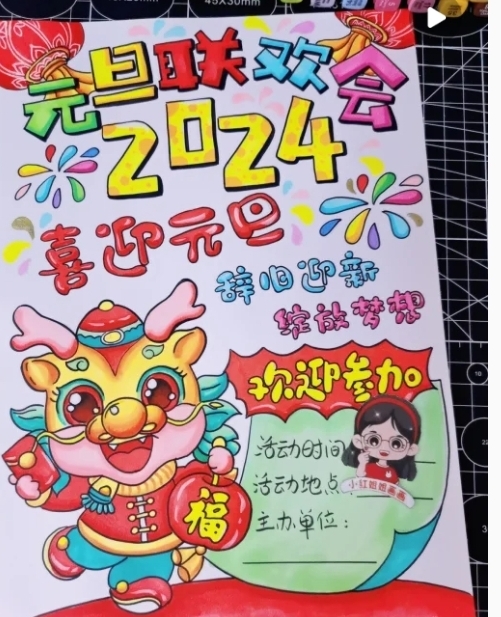 45x30mm
元旦联欢会
2024
喜迎元旦
辞旧迎新
绽放梦想
欢迎参加
活动时间
活动地点
小红姐姐画画
主办单位：
福